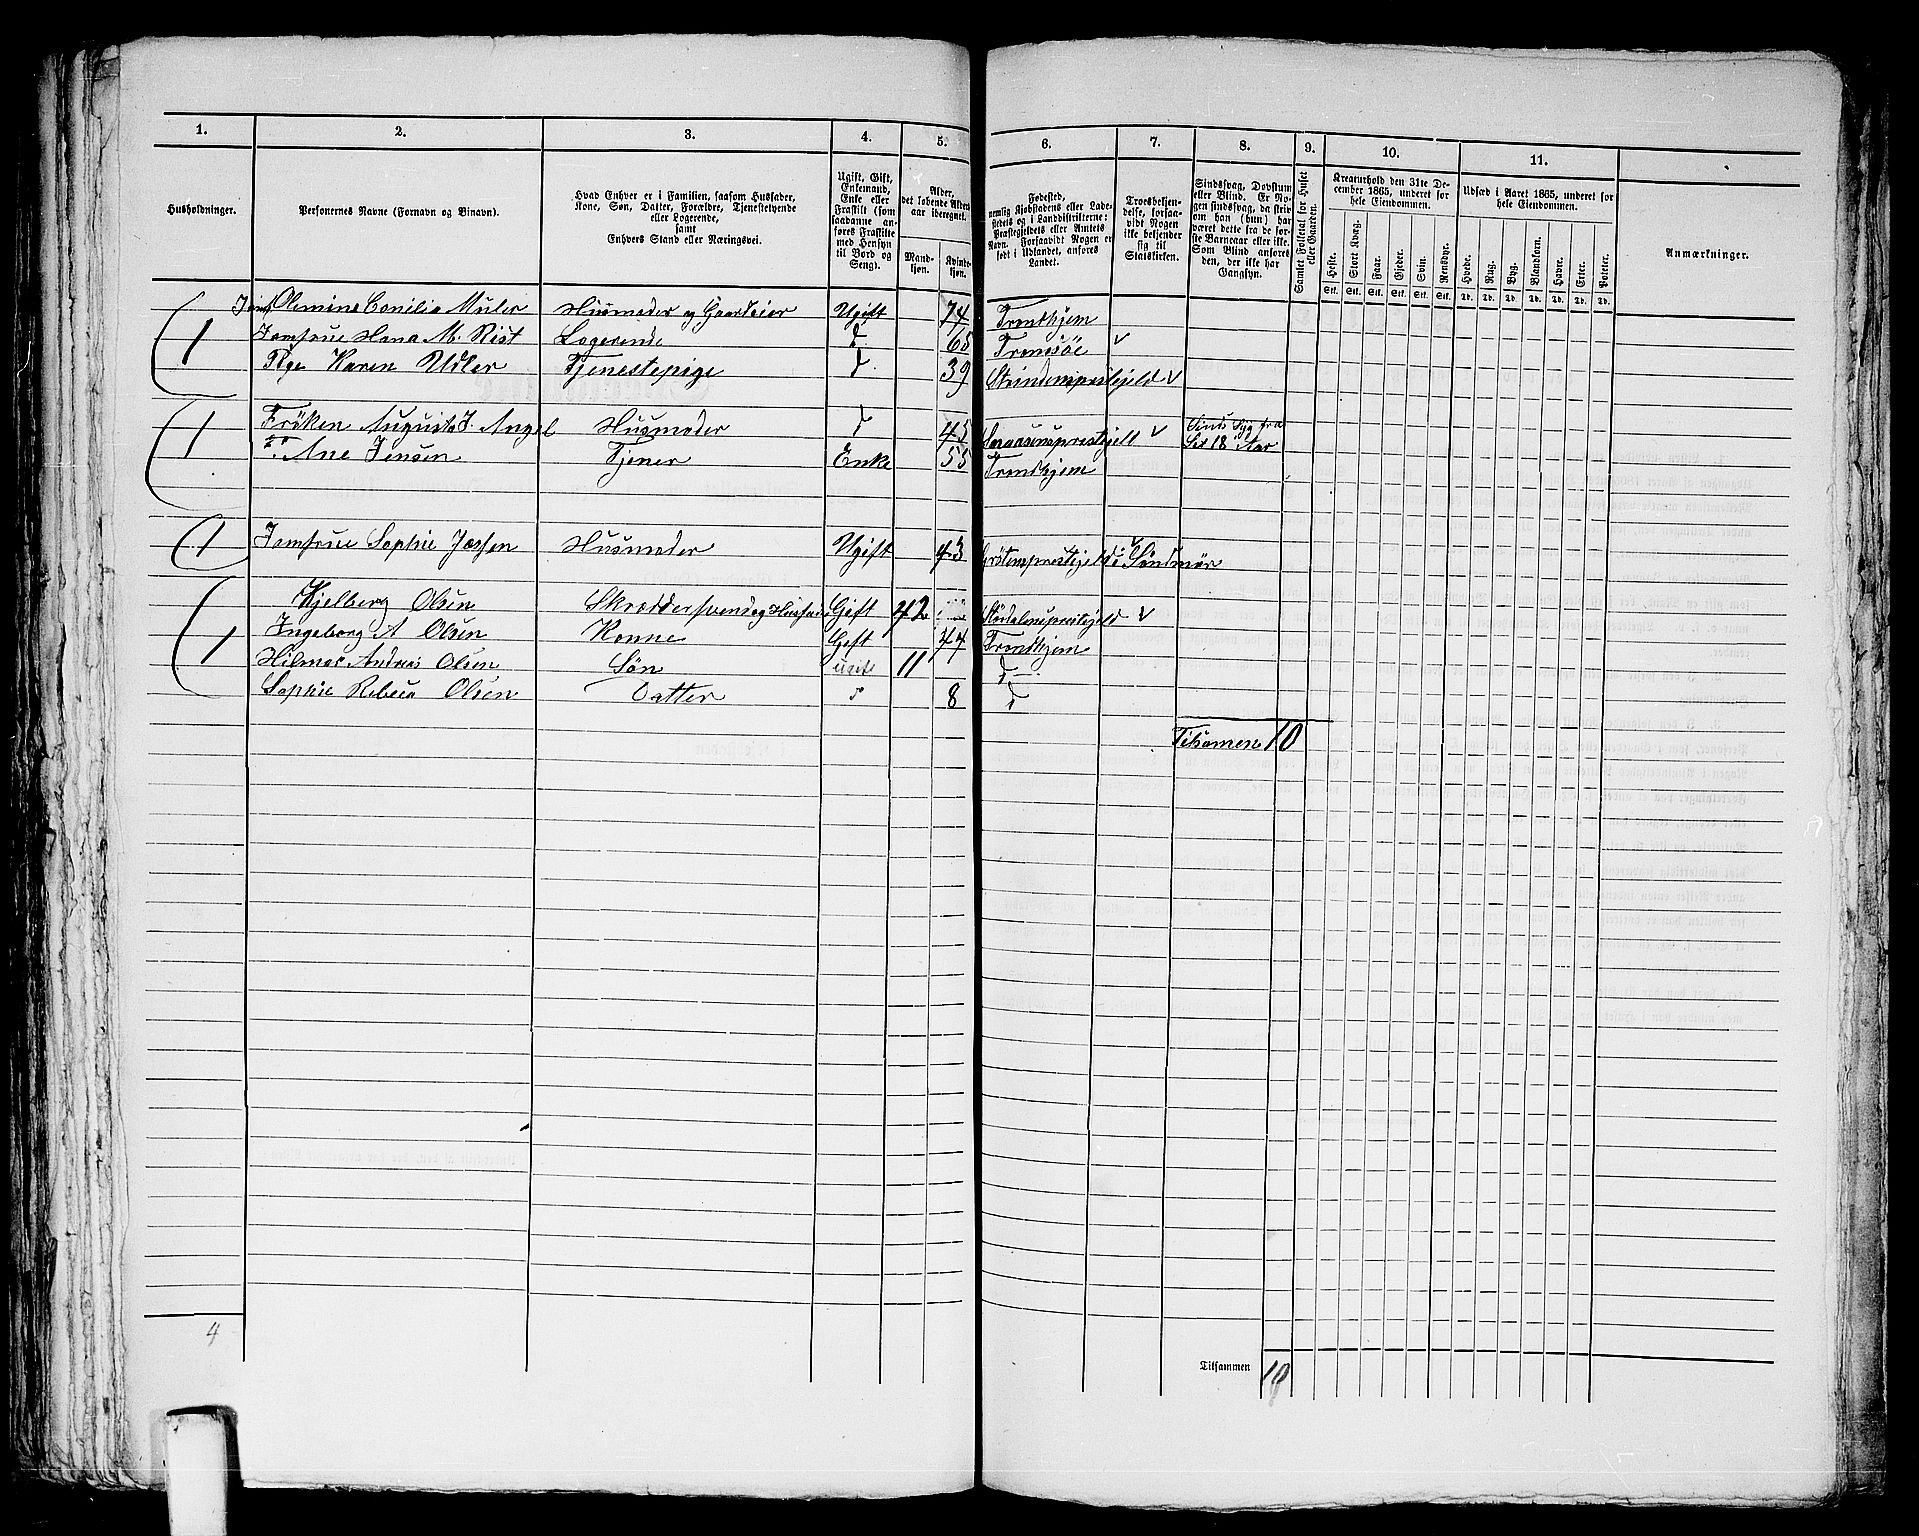 1. 2. 3. 4. 5. 6. 7. 8. 9. 10. 11.
Husholdninger.
Personernes Navne (Fornavn og Binavn).
Hvad Enhver er i Familien, saasom Husfader,
Kone, Søn, Datter, Forældre, Tjenestetyende
eller Logerende,
samt
Enhvers Stand eller Næringsvei.
Ugift, Gift,
Enkemand,
Enke eller
Fraskilt (som
saadanne an-
føres Fraskilte
med Hensyn
til Bord og
Seng).
Alder,
det løbende Alders-
aar iberegnet.
Mand-
kjøn.
Kvinde-
kjøn.
Fødested,
nemlig Kjøbstadens eller Lade-
stedets og i Landdistrikterne:
Præstegjeldets eller Amtets
Navn. Forsaavidt Nogen er
født i Udlandet, anføres
Landet.
Troesbekjen-
delse, forsaa-
vidt Nogen
ikke bekjender
sig til
Statskirken.
Sindssvag, Døvstum
eller Blind. Er No-
gen sindssvag, da skrives
om han (hun) har
været dette fra de før-
ste Barneaar eller ikke.
Som Blind anføres
den, der ikke har
Gangsyn.
Samlet Folketal for Huset
eller Gaarden.
Kreaturhold den 31te De-
cember 1865, underet for
hele Eiendommen.
Heste. Stort Kvæg. Faar. Gjeder. Svin. Rensdyr.
Stk. Stk. Stk. Stk. Stk. Stk.
Udsæd i Aaret 1865, underet for
hele Eiendommen.
Hvede. Rug. Byg. Blandkorn. Havre. Erter. Poteter.
Td. Td. Td. Td. Td. Td. Td.
Anmærkninger.
Olemine Conilia Muler Husmoder og Gaardeier Ugift 74 Trondhjem
1 Jomfrue Hana M. Rist Logerende d 68 Tromsøe
Pige Karen Udler Tjenestepige d 39 Strindenspræstejeld
1 Frøken Augusta J. Angel Husmoder d 45 Sinds Syg fra
Ane Jensen Tjener Enke 55 Trondhjem Sit 18 Aar
1 Jomfrue Sophie Jessen Husmoder Ugift 43 i Søndmør
Kjelberg Olsen Skrædder svend og Gift 42
1 Ingeborg A Olsen Konne Geft 44 Trondhjem
Hilmar Andreas Olsen Søn ugift 11 d
Sophie Rebeca Olsen Datter d 8 d
Tilsamen 10
4
Tilsammen 10